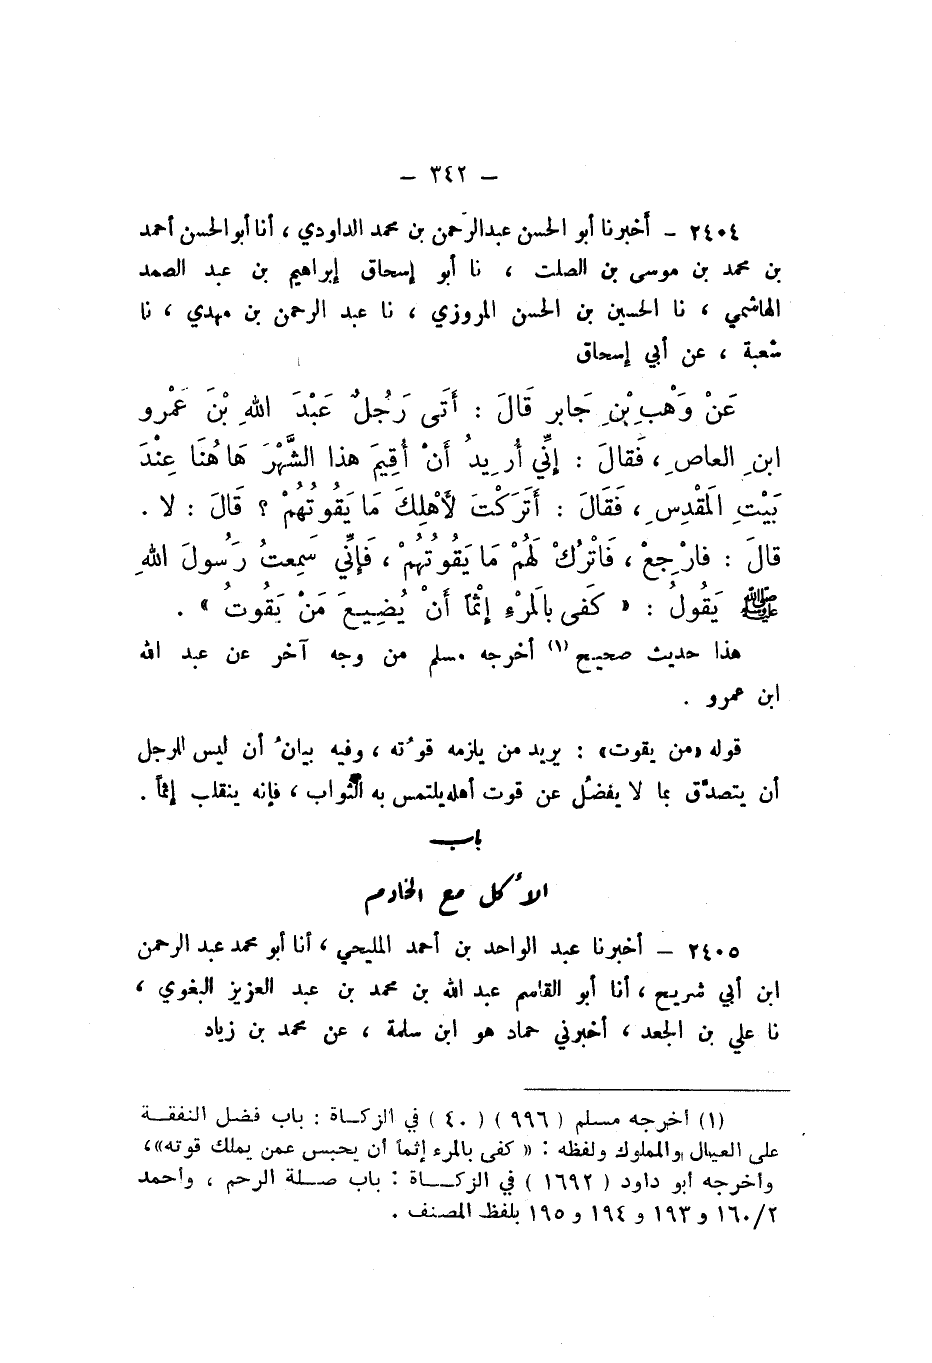 – ٣٤٢ –
٢٤٠٤ – أخبرنا أبو الحسن عبدالرّحمن بن محمد الداودي ، أنا أبو الحسن أحمد
بن محمد بن موسى بن الصلت ، نا أبو إسحاق إبراهيم بن عبد الصمد
الهاشمي ، نا الحسين بن الحسن المروزي ، نا عبد الرحمن بن مهدي ، نا
شعبة ، عن أبي إسحاق
عَنْ وَهْبِ بْنِ جَابرٍ قَالَ : أَتَى رَجُلٌ عَبْدَ اللهِ بْنَ عَمْرو
ابنِ العاصِ ، فَقالَ : إِنِّي أُرِيدُ أَنْ أُقِيمَ هذا الشَّهْرَ هَا هُنَا عِنْدَ
بَيْتِ المَقْدِسِ ، فَقَالَ : أَتَرَكْتَ لأَهْلِكَ مَا يَقُوتُهُمْ ؟ قَالَ : لا .
قالَ : فارْجِعْ ، فَاتْرُكْ لَهُمْ مَا يَقُوتُهُمْ ، فَإِنِّي سَمِعتُ رَسُولَ اللهِ
ﷺ يَقُولُ : « كَفى بالمَرْءِ إِثْمًا أَنْ يُضِيعَ مَنْ يَقُوتُ » .
هذا حديث صحيح (١) أخرجه مسلم من وجه آخر عن عبد الله
ابن عمرو .
قوله «من يقوت» : يريد من يلزمه قوتُه ، وفيه بيانُ أن ليس للرجل
أن يتصدّق بما لا يفضُل عن قوت أهله يلتمس به الثواب ، فإنه ينقلب إثماً .
باب
الأكل مع الخادم
٢٤٠٥ – أخبرنا عبد الواحد بن أحمد المليحي ، أنا أبو محمد عبد الرحمن
ابن أبي شريح ، أنا أبو القاسم عبد الله بن محمد بن عبد العزيز البغوي ،
نا علي بن الجعد ، أخبرني حماد هو ابن سلمة ، عن محمد بن زياد
(١) أخرجه مسلم ( ٩٩٦ ) ( ٤٠ ) في الزكاة : باب فضل النفقة
على العيال والمملوك ولفظه : « كفى بالمرء إثماً أن يحبس عمن يملك قوته»،
وأخرجه أبو داود ( ١٦٩٢ ) في الزكاة : باب صلة الرحم ، وأحمد
١٦٠/٢ و ١٩٣ و ١٩٤ و ١٩٥ بلفظ المصنف .